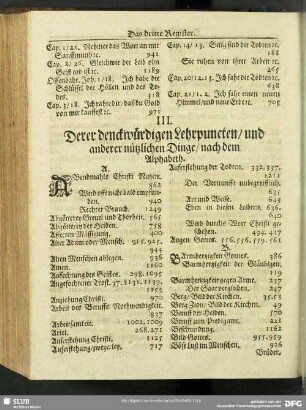 Das dritte Register.
Cap. 1/21. Nehmet das Wort an mit
Sanfftmuth ꝛc. 941
Cap. 2/26. Gleichwie der Leib ohn
Geist tod ist ꝛc. 1189
Offenbahr. Joh. 1/18. Ich habe die
Schlüssel der Höllen und des Todes.
318
Cap. 3/18. Ich rathe dir/ daß du Gold
von mir kauffest ꝛc. 971
Cap. 14/13. Selig sind die Todten ꝛc.
188
Sie ruhen von ihrer Arbeit ꝛc.
265
Cap. 20/12.13. Ich sahe die Todten ꝛc.
638
Cap. 21/1.2. Ich sahe einen neuen
Himmel/ und neue Erd ꝛc. 705
III.
Derer denckwürdigen Lehrpuncten/ und
anderer nützlichen Dinge/ nach dem
Alphabeth.
A.
Abendmahls Christi Nutzen.
862
Wird offt nicht bald empfunden.
940
Rechter Brauch. 1249
Abgötterey Greuel und Thorheit. 565
Abgötterey der Heyden. 758
Alter Adam oder Mensch. 915. 925.
944
Alten Menschen ablegen. 936
Amen. 1160
Anfechtung des Geistes. 298. 1095
1153. 1139
Anziehung Christi. 970
Arbeit des Beruffs Nothwendigkeit.
837
Arbeitsamkeit. 1002. 1009
Artel. 268. 271
Aufferstehung Christi. 1125
Aufferstehung/ zweyerley. 717
Aufferstehung der Todten. 332. 337.
1211
Der Vernunfft unbegreifflich.
635
Art und Weise. 643
Eben in diesen Leibern. 636.
640
Wird durchs Wort Christi geschehen.
434. 437
Augen Gottes. 556. 556. 559. 561
B.
Barmhertzigkeit Gottes. 386
Barmhertzigkeit der Gläubigen.
119
Barmhertzigkeit gegen Arme. 237
Der Haar vergolden. 273
Berg/ Bild der Kirchen. 35. 53
Berg Zion/ Bild der Kirchen. 49
Beruff der Heyden. 570
Beruff zum Predigamt. 221
Beschneidung. 1162
Bild Gottes. 955. 959
Böse Lust im Menschen. 926
Brüder/